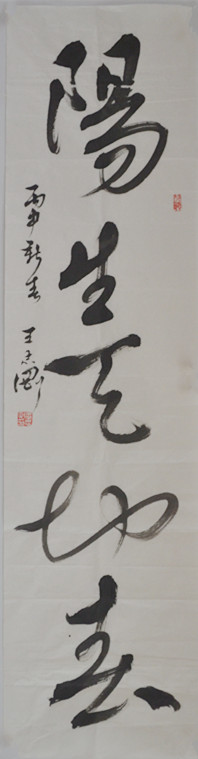 陽生天地春
丙申新春 王志剛